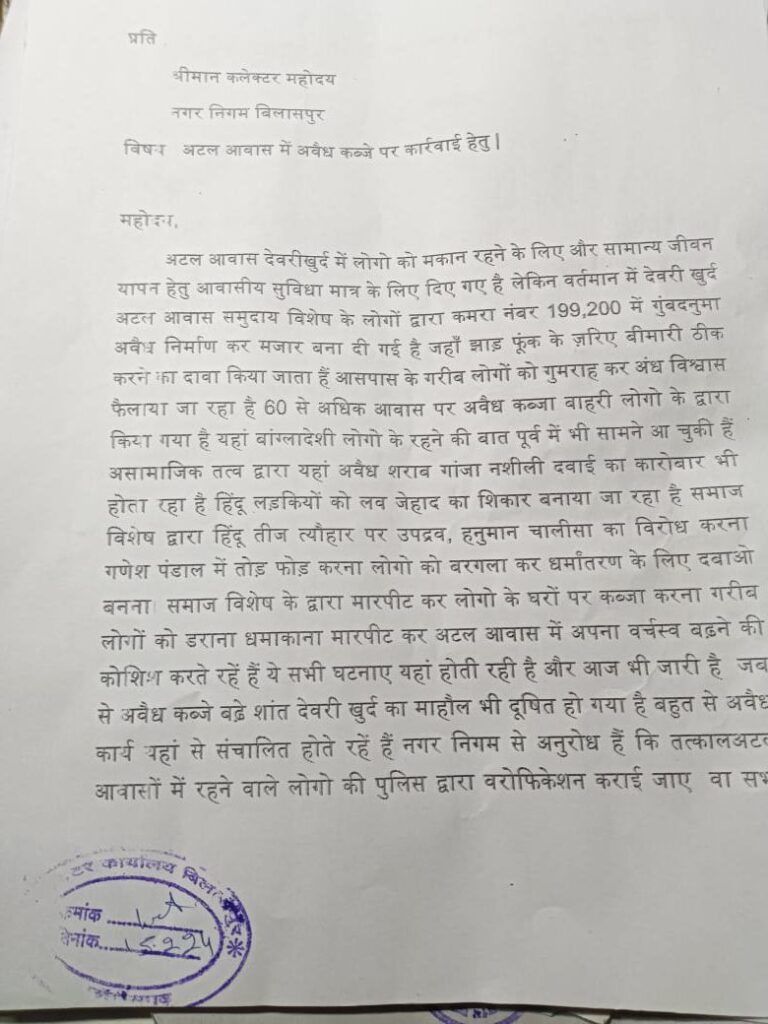 प्रति
श्रीमान कलेक्टर महोदय
नगर निगम बिलासपुर
विषय अटल आवास में अवैध कब्जे पर कार्रवाई हेतु |
महोदय,
अटल आवास देवरीखुर्द में लोगो को मकान रहने के लिए और सामान्य जीवन
यापन हेतु आवासीय सुविधा मात्र के लिए दिए गए है लेकिन वर्तमान में देवरी खुर्द
अटल आवास समुदाय विशेष के लोगों द्वारा कमरा नंबर 199,200 में गुंबदनुमा
अवैध निर्माण कर मजार बना दी गई है जहाँ झाड़ फूंक के ज़रिए बीमारी ठीक
करने का दावा किया जाता हैं आसपास के गरीब लोगों को गुमराह कर अंध विश्वास
फैलाया जा रहा है 60 से अधिक आवास पर अवैध कब्जा बाहरी लोगो के द्वारा
किया गया है यहां बांग्लादेशी लोगो के रहने की बात पूर्व में भी सामने आ चुकी हैं
असामाजिक तत्व द्वारा यहां अवैध शराब गांजा नशीली दवाई का कारोबार भी
होता रहा है हिंदू लड़कियों को लव जेहाद का शिकार बनाया जा रहा है समाज
विशेष द्वारा हिंदू तीज त्यौहार पर उपद्रव, हनुमान चालीसा का विरोध करना
गणेश पंडाल में तोड़ फोड़ करना लोगो को बरगला कर धर्मांतरण के लिए दबाओ
बनना समाज विशेष के द्वारा मारपीट कर लोगो के घरों पर कब्जा करना गरीब
लोगों को डराना धमाकाना मारपीट कर अटल आवास में अपना वर्चस्व बढ़ने की
कोशिश करते रहें हैं ये सभी घटनाए यहां होती रही है और आज भी जारी है जब
से अवैध कब्जे बढ़े शांत देवरी खुर्द का माहौल भी दूषित हो गया है बहुत से अवैध
कार्य यहां से संचालित होते रहें हैं नगर निगम से अनुरोध हैं कि तत्कालअटल
आवासों में रहने वाले लोगो की पुलिस द्वारा वरोफिकेशन कराई जाए वा सभ
टर कार्यालय बिलासपुर
क्रमांक
दिनांक 15.9.24
छत्तीसगढ़